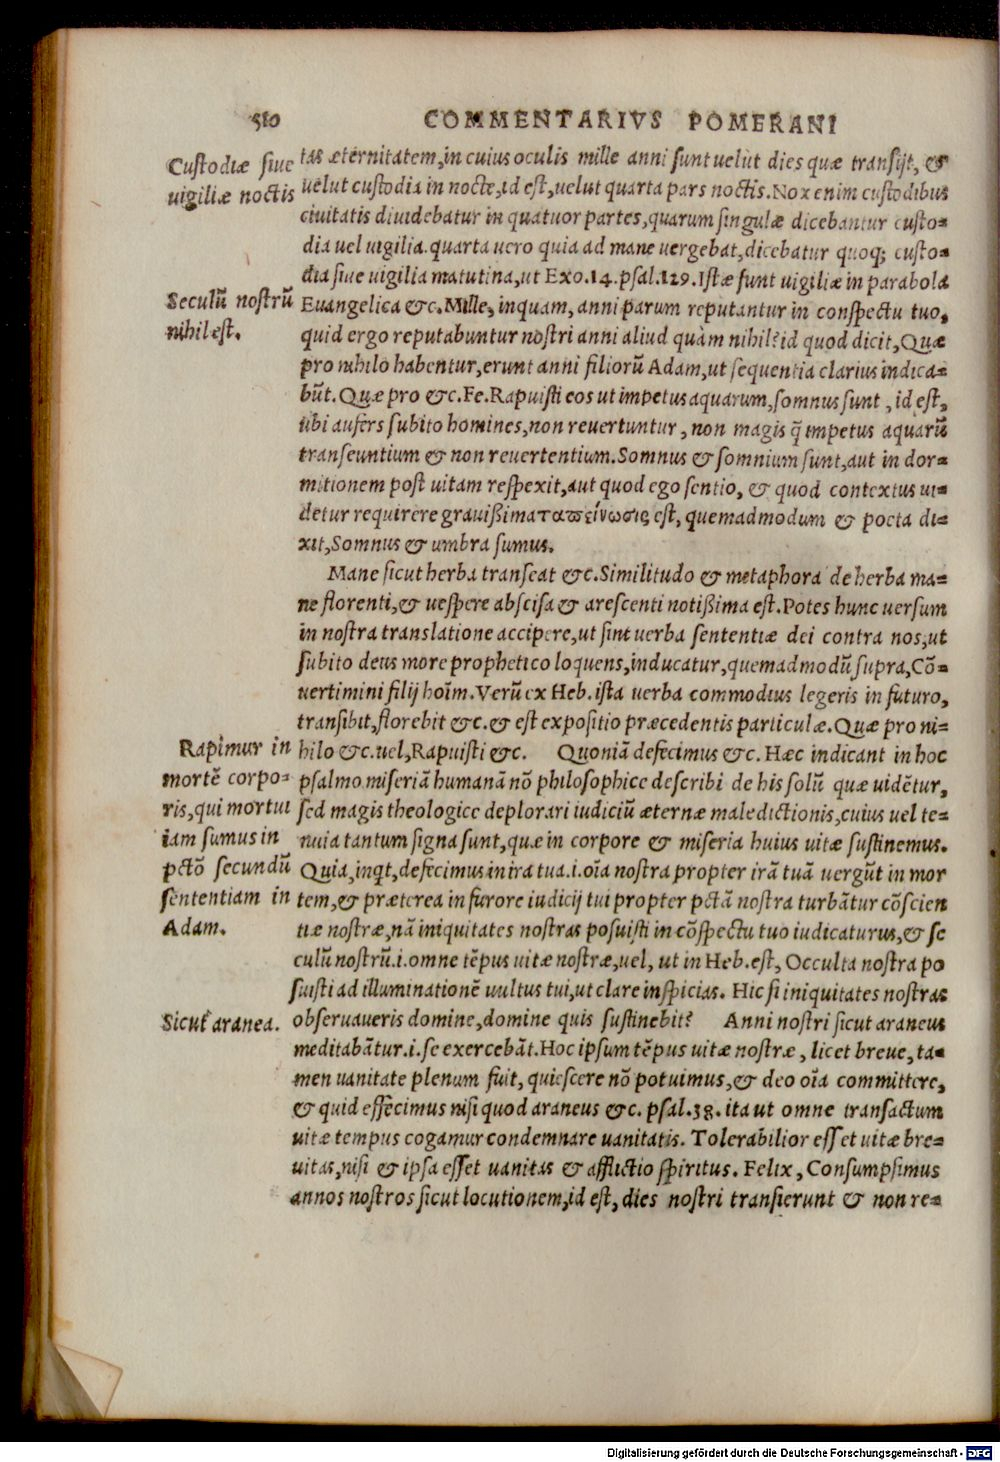 510
COMMENTARIVS POMERANI
Custodiæ siue
uigiliæ noctis
tas æternitatem,in cuius oculis mille anni sunt uelut dies quæ transijt, &
uelut custodia in nocte,id est,uelut quarta pars noctis.Nox enim custodibus
ciuitatis diuidebatur in quatuor partes,quarum singulæ dicebantur custo-
dia uel uigilia.quarta uero quia ad mane uergebat,dicebatur quoq; custo-
dia siue uigilia matutina,ut Exo.14.psal.129.Istæ sunt uigiliæ in parabola
Seculũ nostrũ
nihil est.
Euangelica &c.Mille, inquam, anni parum reputantur in conspectu tuo,
quid ergo reputabuntur nostri anni aliud quàm nihil?id quod dicit,Quæ
pro nihilo habentur,erunt anni filiorũ Adam,ut sequentia clarius indica-
bũt.Quæ pro &c.Fe.Rapuisti eos ut impetus aquarum,somnus sunt , id est,
ubi aufers subito homines,non reuertuntur , non magis q̃ impetus aquarũ
transeuntium & non reuertentium.Somnus & somnium sunt,aut in dor-
mitionem post uitam respexit,aut quod ego sentio, & quod contextus ui-
detur requirere grauißima ταπείνωσις est, quemadmodum & poeta di-
xit,Somnus & umbra sumus.
Mane sicut herba transeat &c.Similitudo & metaphora de herba ma-
ne florenti,& uespere abscisa & arescenti notißima est.Potes hunc uersum
in nostra translatione accipere,ut sint uerba sententiæ dei contra nos,ut
subito deus more prophetico loquens,inducatur,quemadmodũ supra,Cõ-
uertimini filij hoĩm.Verũ ex Heb.ista uerba commodius legeris in futuro,
transibit,florebit &c.& est expositio præcedentis particulæ.Quæ pro ni-
Rapimur in
mortẽ corpo-
ris,qui mortui
iam sumus in
pctõ secundũ
sententiam in
Adam.
hilo &c.uel,Rapuisti &c. Quoniã defecimus &c. Hæc indicant in hoc
psalmo miseriã humanã nõ philosophice describi de his solũ quæ uidẽtur,
sed magis theologice deplorari iudiciũ æternæ maledictionis,cuius uel te-
nuia tantum signa sunt,quæ in corpore & miseria huius uitæ sustinemus.
Quia,inqt,defecimus in ira tua.i.oĩa nostra propter irã tuã uergũt in mor
tem,& præterea in furore iudicij tui propter pctã nostra turbãtur cõscien
tiæ nostræ,nã iniquitates nostras posuisti in cõspectu tuo iudicaturus,& se
culũ nostrũ.i.omne tẽpus uitæ nostræ,uel, ut in Heb.est, Occulta nostra po
suisti ad illuminationẽ uultus tui,ut clare inspicias. Hic si iniquitates nostras
Sicut aranea.
obseruaueris domine,domine quis sustinebit? Anni nostri sicut araneus
meditabãtur.i.se exercebãt.Hoc ipsum tẽpus uitæ nostræ , licet breue, ta-
men uanitate plenum fuit, quiescere nõ potuimus,& deo oĩa committere,
& quid effecimus nisi quod araneus &c. psal.38. ita ut omne transactum
uitæ tempus cogamur condemnare uanitatis. Tolerabilior esset uitæ bre-
uitas,nisi & ipsa esset uanitas & afflictio spiritus. Felix, Consumpsimus
annos nostros sicut locutionem,id est, dies nostri transierunt & non re-
Digitalisierung gefördert durch die Deutsche Forschungsgemeinschaft - DFG